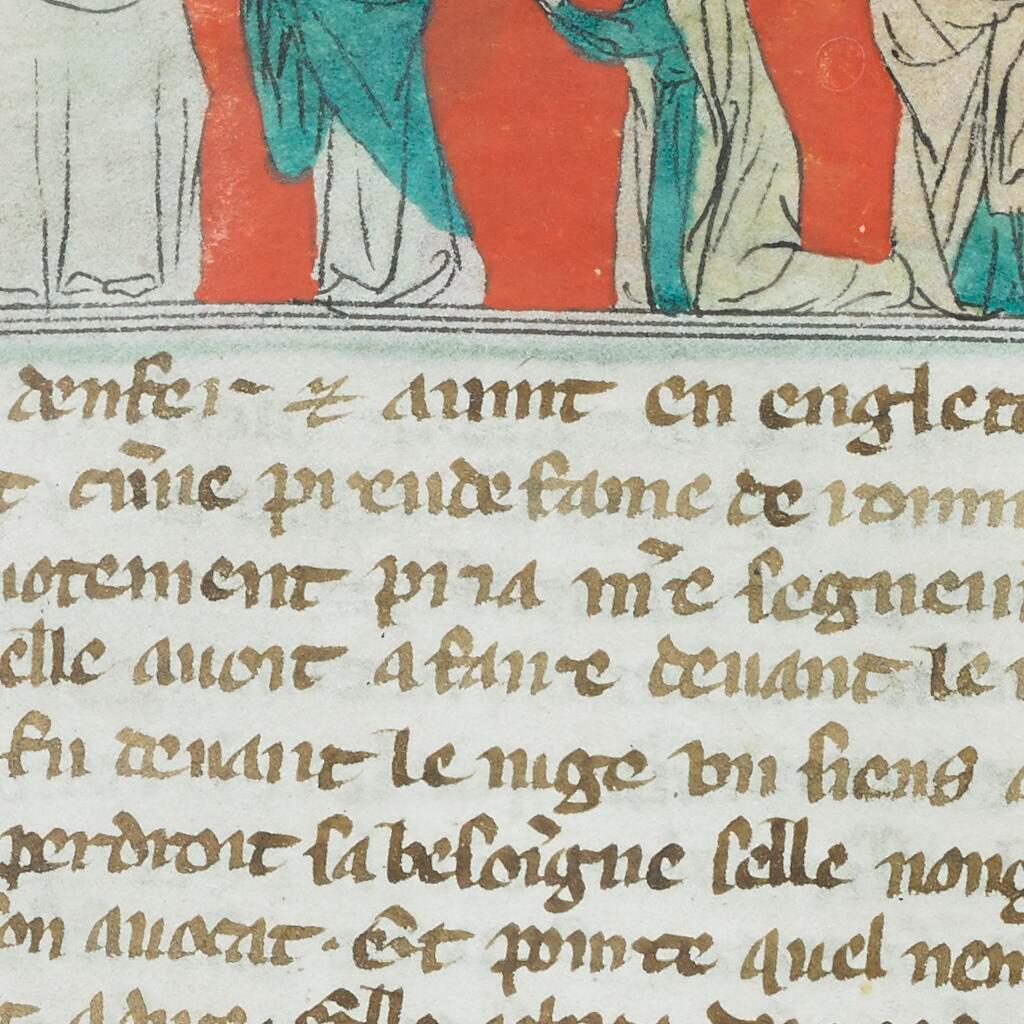 denfer ⁊ auint en englete
t cū̄ue preude fame de ioinn
uotement pria mr̄e segneur
elle auoit afaire deuant le
fu deuant le iuge vn siens a
perdroit sabesoi̅gne selle nong
son auocat. Et pointe quel nen